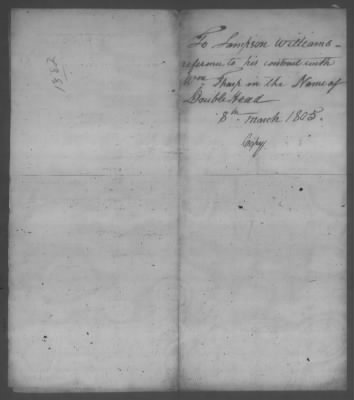 To Sampson Williams -
reference to his contract with
Wm Tharp in the Name of
Double Head
8th March 1805.
Copy
1882